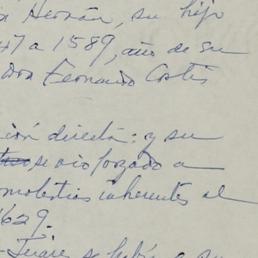 Hernán, su hijo
47 a 1589, año de su
Don Fernando Cortés
ción directa: y su
se vio forzado a
molestias inherentes al
1629.
Juárez se había a su